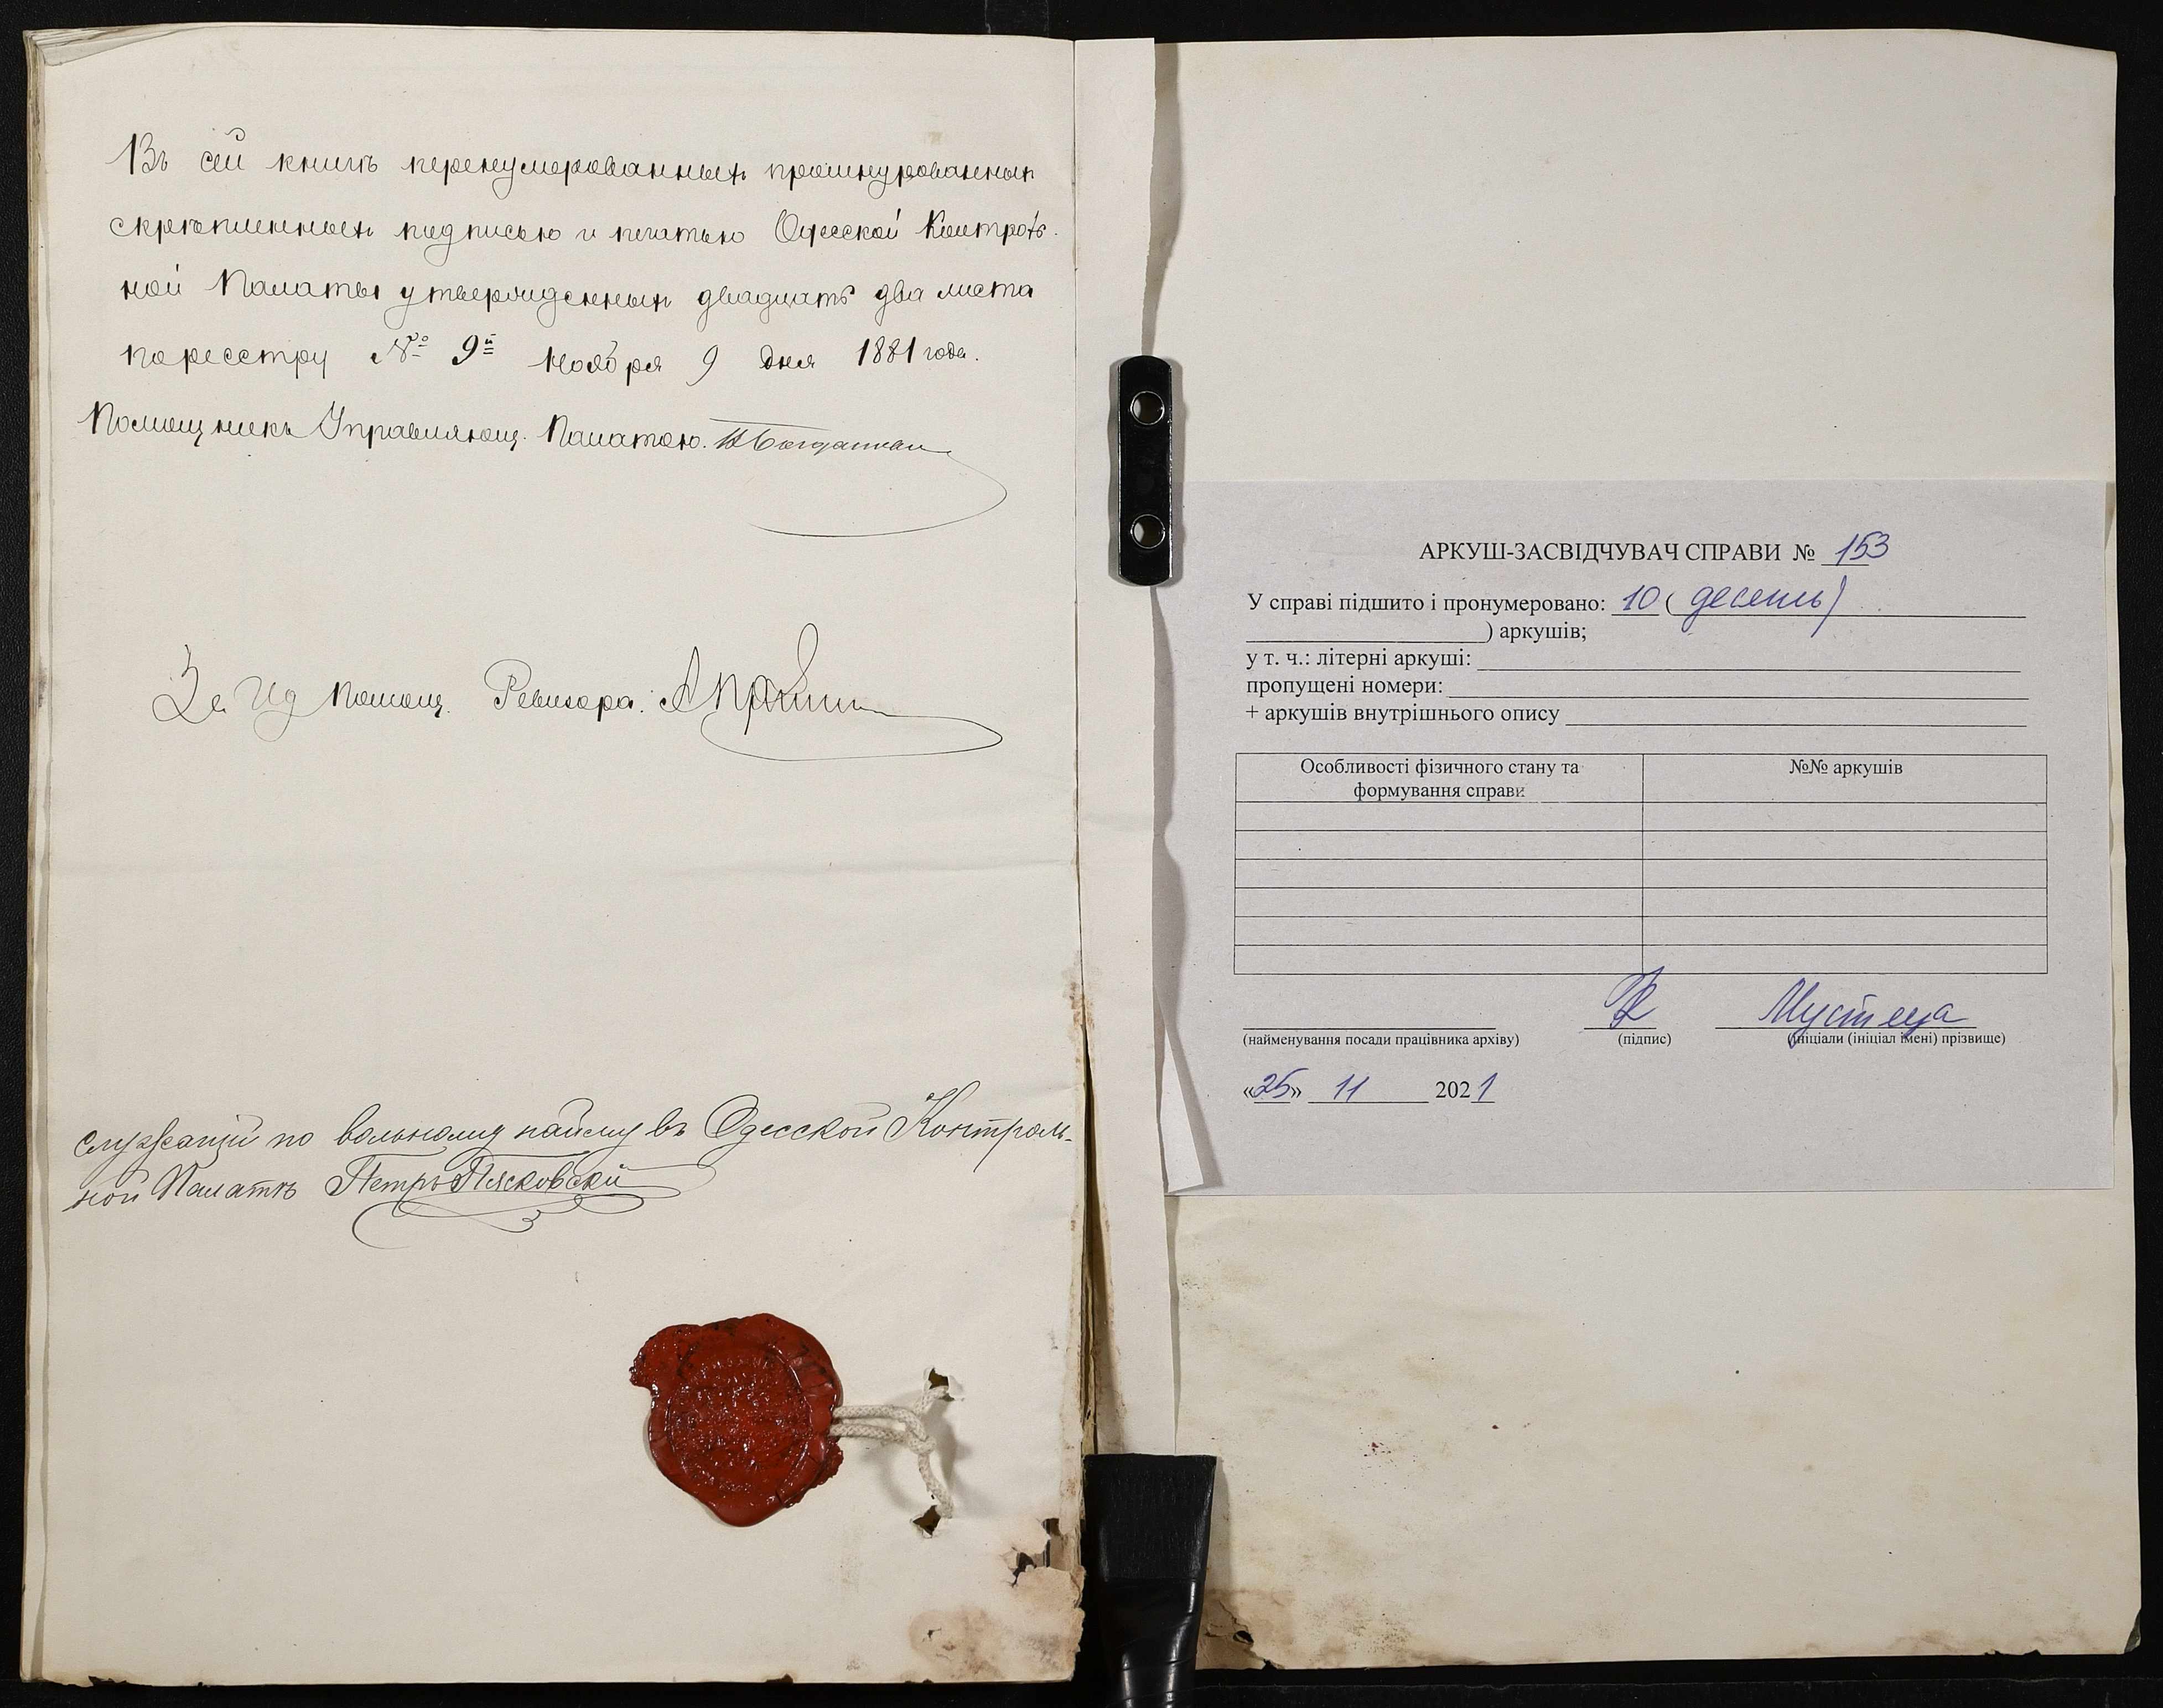 Въ сей книгѣ перенумерованныхъ прошнурованныхъ
скрѣпленныхъ подписью и печатью Одесской Контроль-
ной Палаты утвержденныхъ двадцать два листа
по реестру № 9й Ноября 9 дня 1881 года.
Помощникъ Управляющ. Палатою.
За Помощ. Ревизора.
служащій по вольному найму въ Одесской Контроль-
ной Палатѣ Петръ Пясковскій
АРКУШ-ЗАСВІДЧУВАЧ СПРАВИ № 153
У справі підшито і пронумеровано: 10 (десять)
) аркушів;
у т. ч.: літерні аркуші:
пропущені номери:
+ аркушів внутрішнього опису
Особливості фізичного стану та
формування справи
№№ аркушів
Мустеца
(найменування посади працівника архіву) (підпис) (ініціали (ініціал імені) прізвище)
«25» 11 2021